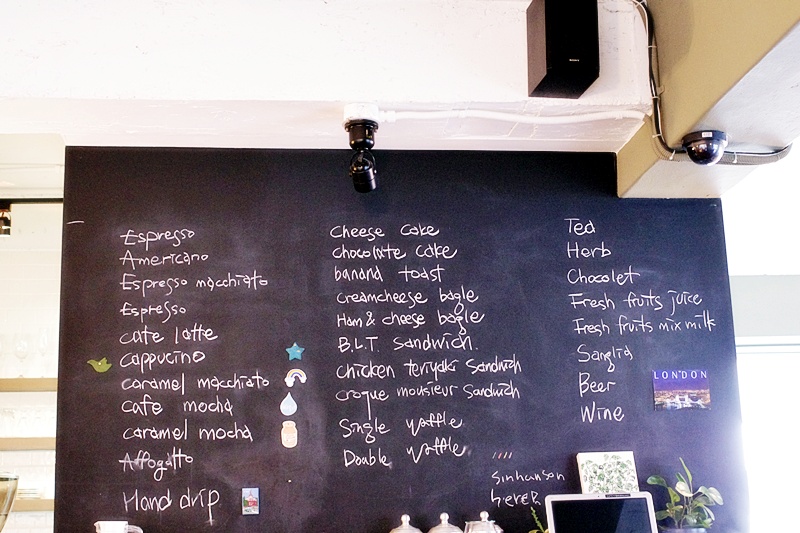 Espresso
Americano
Espresso macchiato
Espresso
cafe latte
cappucino
caramel macchiato
cafe mocha
caramel mocha
Affogatto
Hand drip
Cheese cake
chocolate cake
banana toast
creamcheese bagle
Ham & cheese bagle
B.L.T. Sandwich.
chicken teriyaki Sandwich
croque monsieur Sandwich
Single waffle
Double waffle
Tea
Herb
Chocolet
Fresh fruits juice
Fresh fruits mix milk
Sangria
Beer
Wine
LONDON
SONY